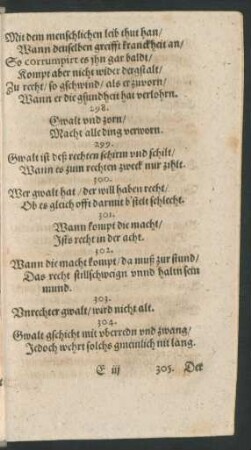 Mit dem menschlichen leib thut han/
Wann denselben greifft kranckheit an/
So corrumpirt es jhn gar baldt/
Kompt aber nicht wider dergstalt/
Zu recht/ so gschwind/ als er zuvorn/
Wann er die gsundheit hat verlohrn.
298.
Gwalt vnd zorn/
Macht alle ding verworn.
299.
Gwalt ist deß rechten schirm vnd schilt/
Wann es zum rechten zweck nur zihlt.
300.
Wer gwalt hat/ der will haben recht/
Ob es gleich offt darmit b'stelt schlecht.
301.
Wann kompt die macht/
Ists recht in der acht.
302.
Wann die macht kompt/ da muß zur stund/
Das recht stillschweign vnnd haltn sein
mund.
303.
Vnrechter gwalt/ wird nicht alt.
304.
Gwalt gschicht mit vberredn vnd zwang/
Jedoch wehrt solchs gmeinlich nit lang.
E iij 305. Der